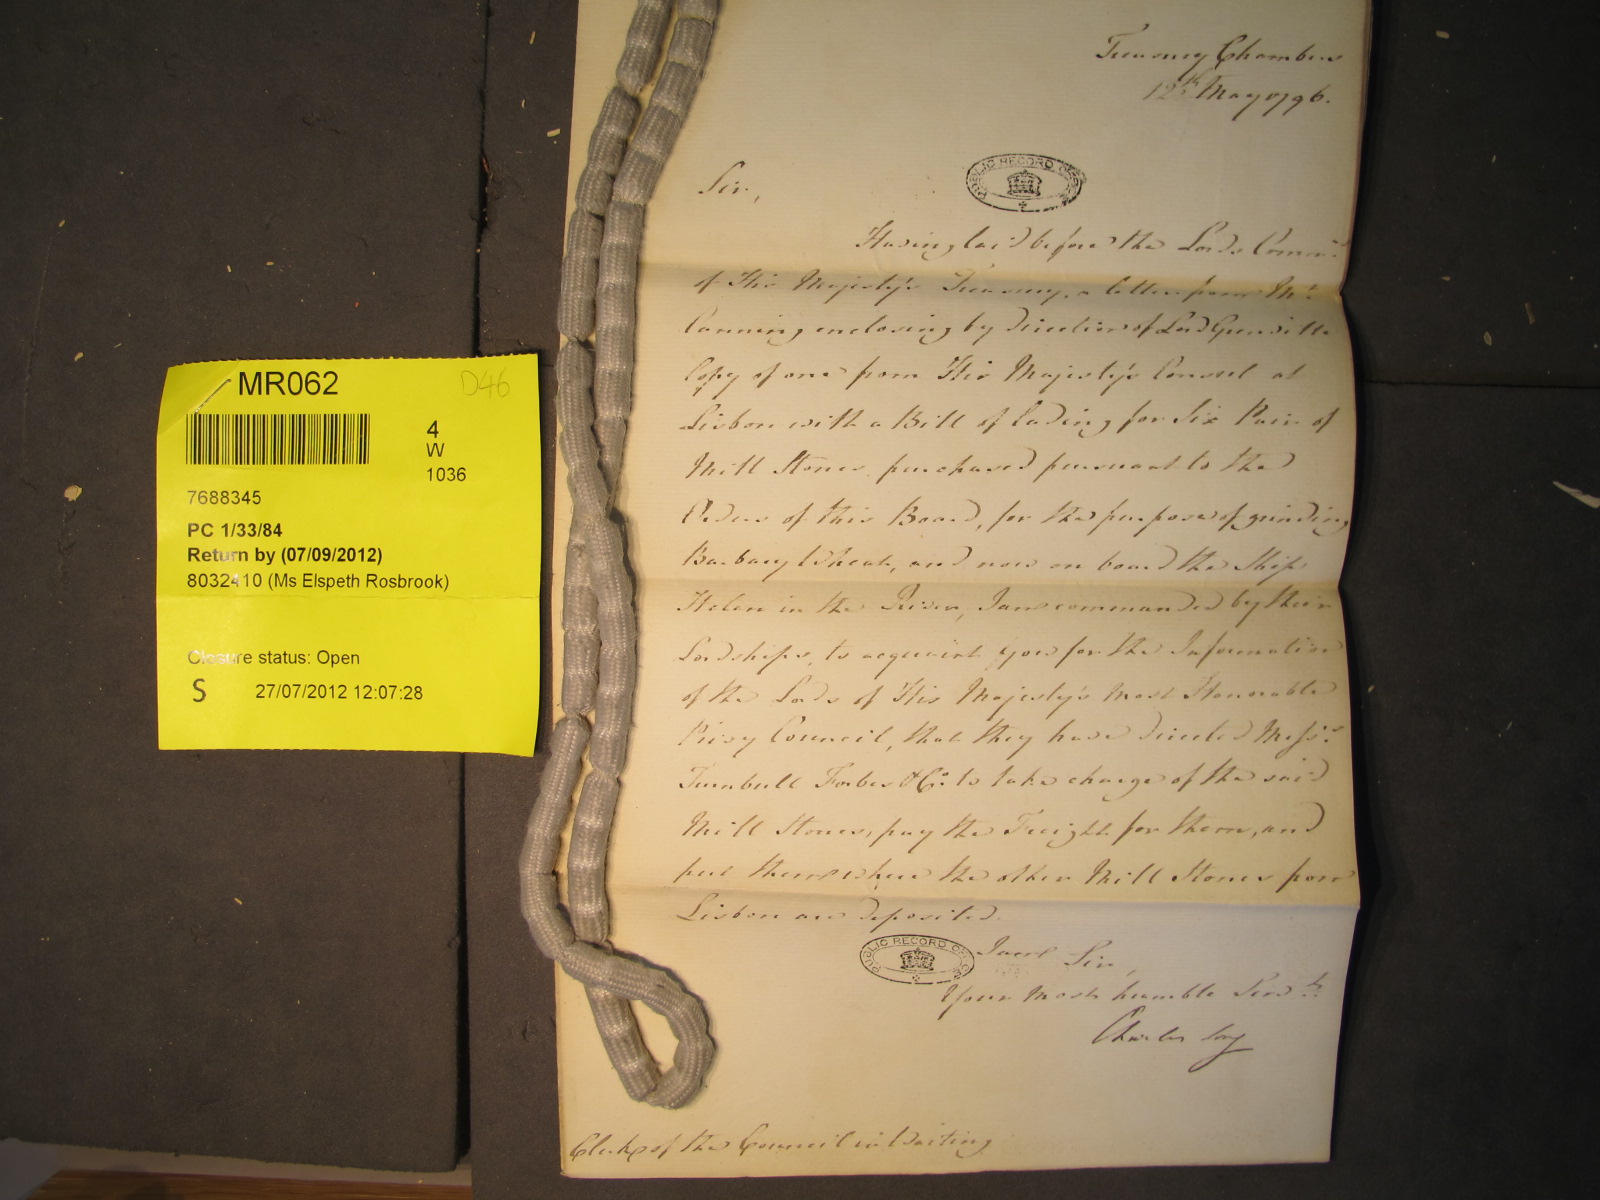 MR062
D46
4
W
1036
7688345
PC 1/33/84
Return by (07/09/2012)
8032410 (Ms Elspeth Rosbrook)
Closure status: Open
S 27/07/2012 12:07:28
Treasury Chambers
12th May 1796.
PUBLIC RECORD OFFICE
Sir,
Having laid before the Lords Commrs
of His Majesty's Treasury, a letter from Mr
Canning enclosing by direction of Lord Grenville
Copy of one from His Majesty's Consul at
Lisbon with a Bill of lading for Six Pair of
Mill Stones, purchased pursuant to the
Orders of this Board, for the purpose of grinding
Barbary Wheat, and now on board the Ship
Helen in the River, I am commanded by their
Lordships, to acquaint you for the Information
of the Lords of His Majesty's most Honorable
Privy Council, that they have directed Messrs
Turnbull Forbes & Co. to take charge of the said
Mill Stones, pay the Freight for them, and
put them where the other Mill Stones from
Lisbon are deposited.
PUBLIC RECORD OFFICE
I am Sir,
Your most humble Servt
Charles Long
Clerk of the Council in Waiting